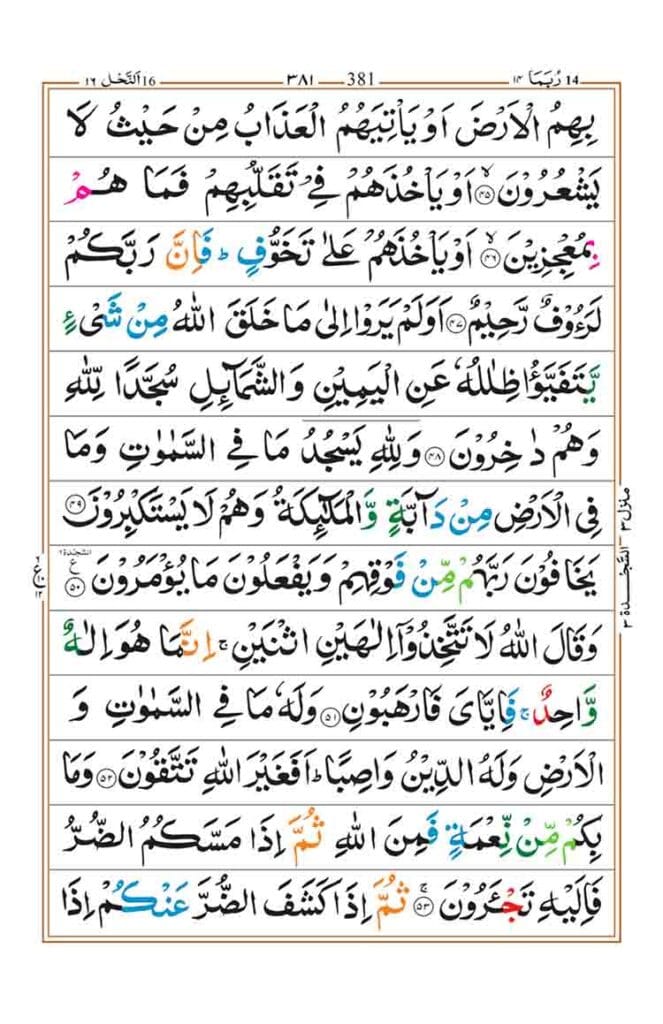 14 رُبَمَا ۱۴ 381 ۳۸۱ 16 اَلنَّحْل ۱۶
بِهِمُ الْاَرْضَ اَوْ يَاْتِيَهُمُ الْعَذَابُ مِنْ حَيْثُ لَا
يَشْعُرُوْنَ ۙ‏﴿۴۵﴾ اَوْ يَاْخُذَهُمْ فِىْ تَقَلُّبِهِمْ فَمَا هُمْ
بِمُعْجِزِيْنَ ۙ‏﴿۴۶﴾ اَوْ يَاْخُذَهُمْ عَلٰى تَخَوُّفٍ ؕ فَاِنَّ رَبَّكُمْ
لَرَءُوْفٌ رَّحِيْمٌ ﴿۴۷﴾ اَوَلَمْ يَرَوْا اِلٰى مَا خَلَقَ اللّٰهُ مِنْ شَىْءٍ
يَّتَفَيَّؤُا ظِلٰلُهٗ عَنِ الْيَمِيْنِ وَالشَّمَآئِلِ سُجَّدًا لِّلّٰهِ
وَهُمْ دٰخِرُوْنَ ﴿۴۸﴾ وَلِلّٰهِ يَسْجُدُ مَا فِى السَّمٰوٰتِ وَمَا
فِى الْاَرْضِ مِنْ دَآبَّةٍ وَّالْمَلٰٓئِكَةُ وَهُمْ لَا يَسْتَكْبِرُوْنَ ﴿۴۹﴾
يَخَافُوْنَ رَبَّهُمْ مِّنْ فَوْقِهِمْ وَيَفْعَلُوْنَ مَا يُؤْمَرُوْنَ ﴿۵۰﴾ السَّجْدَة ع
وَقَالَ اللّٰهُ لَا تَتَّخِذُوْۤا اِلٰهَيْنِ اثْنَيْنِ ۚ اِنَّمَا هُوَ اِلٰهٌ
وَّاحِدٌ ۚ فَاِيَّاىَ فَارْهَبُوْنِ ﴿۵۱﴾ وَلَهٗ مَا فِى السَّمٰوٰتِ وَ
الْاَرْضِ وَلَهُ الدِّيْنُ وَاصِبًا ؕ اَفَغَيْرَ اللّٰهِ تَتَّقُوْنَ ﴿۵۲﴾ وَمَا
بِكُمْ مِّنْ نِّعْمَةٍ فَمِنَ اللّٰهِ ثُمَّ اِذَا مَسَّكُمُ الضُّرُّ
فَاِلَيْهِ تَجْئَرُوْنَ ۚ‏﴿۵۳﴾ ثُمَّ اِذَا كَشَفَ الضُّرَّ عَنْكُمْ اِذَا
منزل ۳
السَّجْدَة ۳